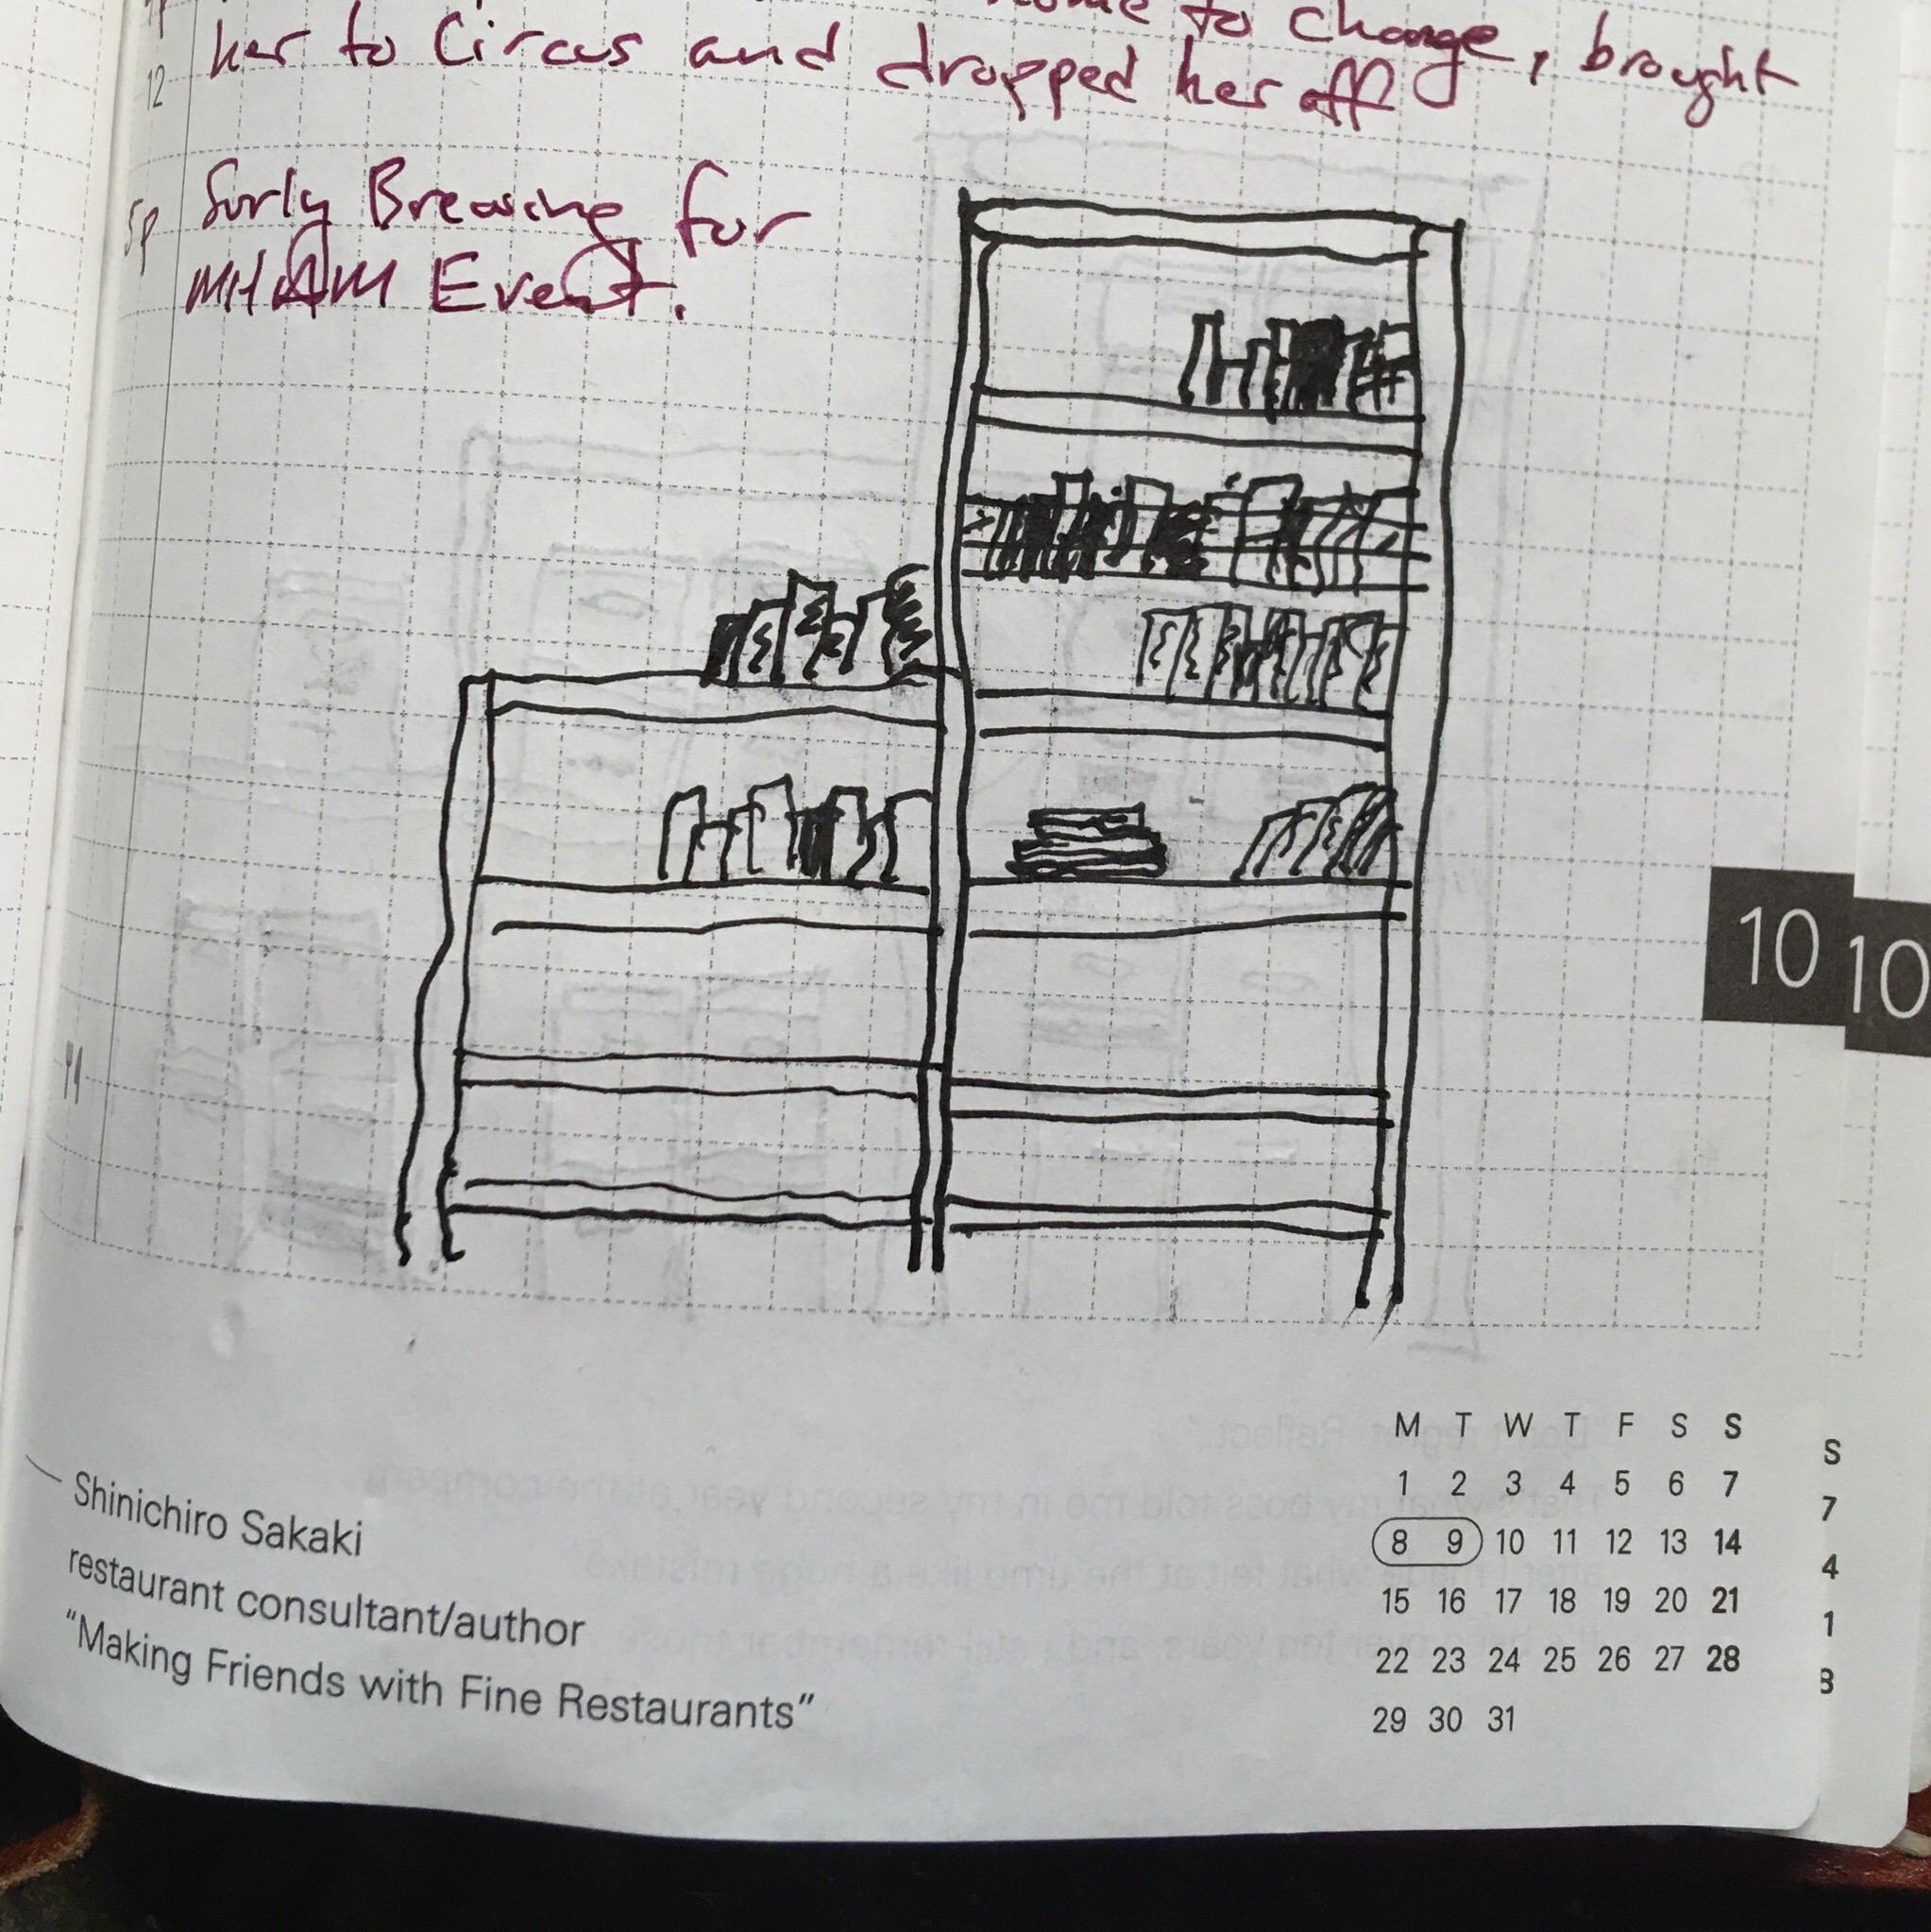 to change, brought
her to Circus and dropped her off
12
5p Surly Brewing for
MHAM Event.
10 10
M T W T F S S
1 2 3 4 5 6 7
8 9 10 11 12 13 14
15 16 17 18 19 20 21
22 23 24 25 26 27 28
29 30 31
S
7
4
1
Shinichiro Sakaki
restaurant consultant/author
"Making Friends with Fine Restaurants"